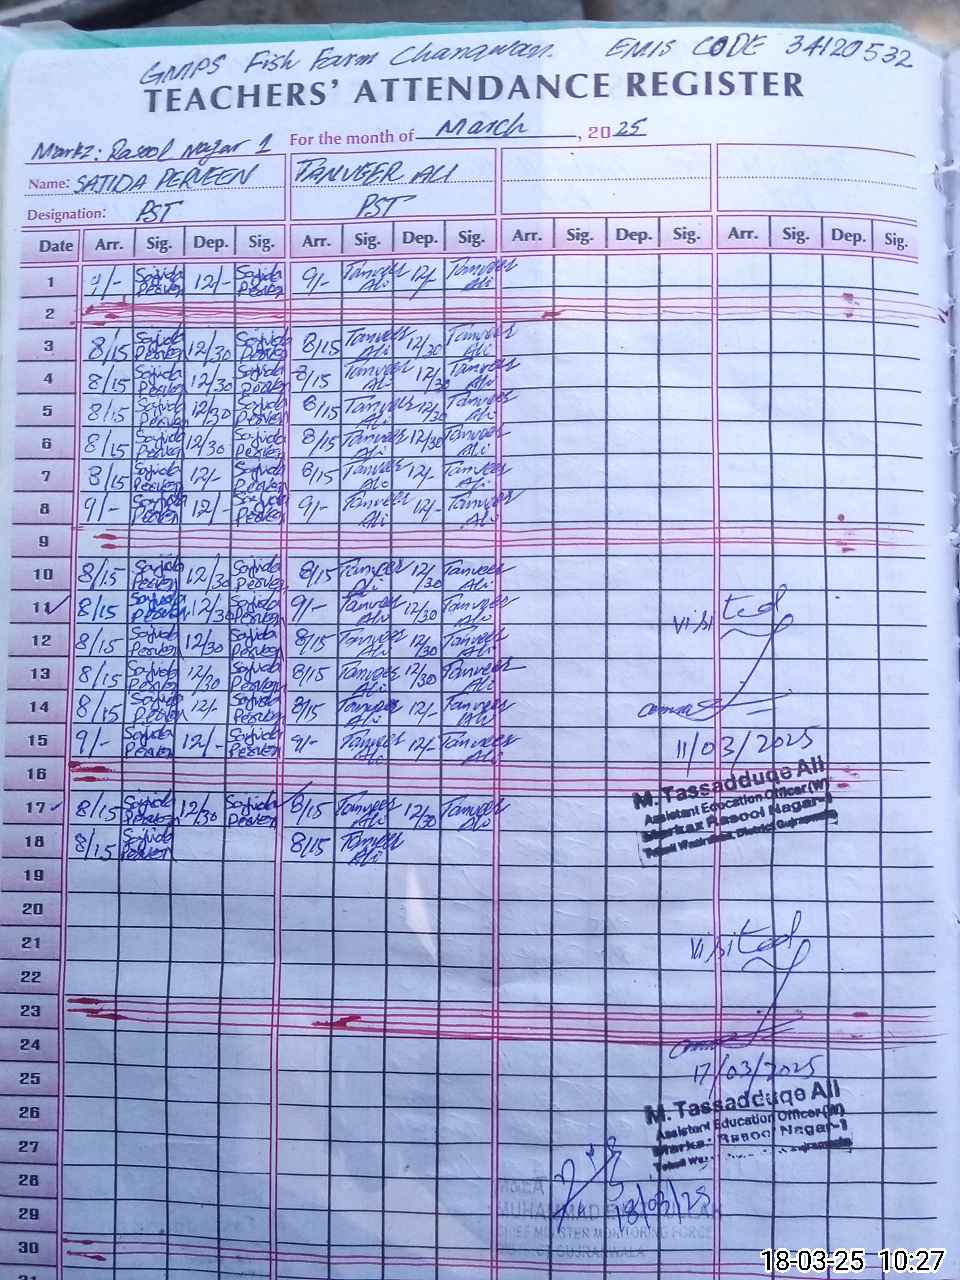 GMPS Fish Farm Chanawan. EMIS CODE 34120532
TEACHERS' ATTENDANCE REGISTER
Markz: Rasool Nagar 1 For the month of March, 2025
Name: SAJIDA PERVEEN TANVEER ALI
Designation: PST PST
Date Arr. Sig. Dep. Sig. Arr. Sig. Dep. Sig. Arr. Sig. Dep. Sig. Arr. Sig. Dep. Sig.
1 9/- Sajida Perven 12/- Sajida Perven 9/- Tanveer Ali 12/- Tanveer Ali
2
3 8/15 Sajida Perven 12/30 Sajida Perven 8/15 Tanveer Ali 12/30 Tanveer Ali
4 8/15 Sajida Perven 12/30 Sajida Perven 8/15 Tanveer Ali 12/30 Tanveer Ali
5 8/15 Sajida Perven 12/30 Sajida Perven 8/15 Tanveer Ali 12/30 Tanveer Ali
6 8/15 Sajida Perven 12/30 Sajida Perven 8/15 Tanveer Ali 12/30 Tanveer Ali
7 8/15 Sajida Perven 12/- Sajida Perven 8/15 Tanveer Ali 12/- Tanveer Ali
8 9/- Sajida Perven 12/- Sajida Perven 9/- Tanveer Ali 12/- Tanveer Ali
9
10 8/15 Sajida Perven 12/30 Sajida Perven 8/15 Tanveer Ali 12/30 Tanveer Ali
11 8/15 Sajida Perven 12/30 Sajida Perven 9/- Tanveer Ali 12/30 Tanveer Ali
12 8/15 Sajida Perven 12/30 Sajida Perven 8/15 Tanveer Ali 12/30 Tanveer Ali
13 8/15 Sajida Perven 12/30 Sajida Perven 8/15 Tanveer Ali 12/30 Tanveer Ali
14 8/15 Sajida Perven 12/- Sajida Perven 8/15 Tanveer Ali 12/- Tanveer Ali
15 9/- Sajida Perven 12/- Sajida Perven 9/- Tanveer Ali 12/- Tanveer Ali
16
17 8/15 Sajida Perven 12/30 Sajida Perven 8/15 Tanveer Ali 12/30 Tanveer Ali
18 8/15 Sajida Perven 8/15 Tanveer Ali
19
20
21
22
23
24
25
26
27
28
29
30
visited
11/03/2025
M. Tassadduqe Ali
Assistant Education Officer (W)
Markaz Rasool Nagar-1
Tehsil Wazirabad, District Gujranwala
visited
17/03/2025
M. Tassadduqe Ali
Assistant Education Officer (W)
Markaz Rasool Nagar-1
18/03/25
MUHAMMAD
CHIEF MINISTER MONITORING FORCE
GUJRANWALA
18-03-25 10:27